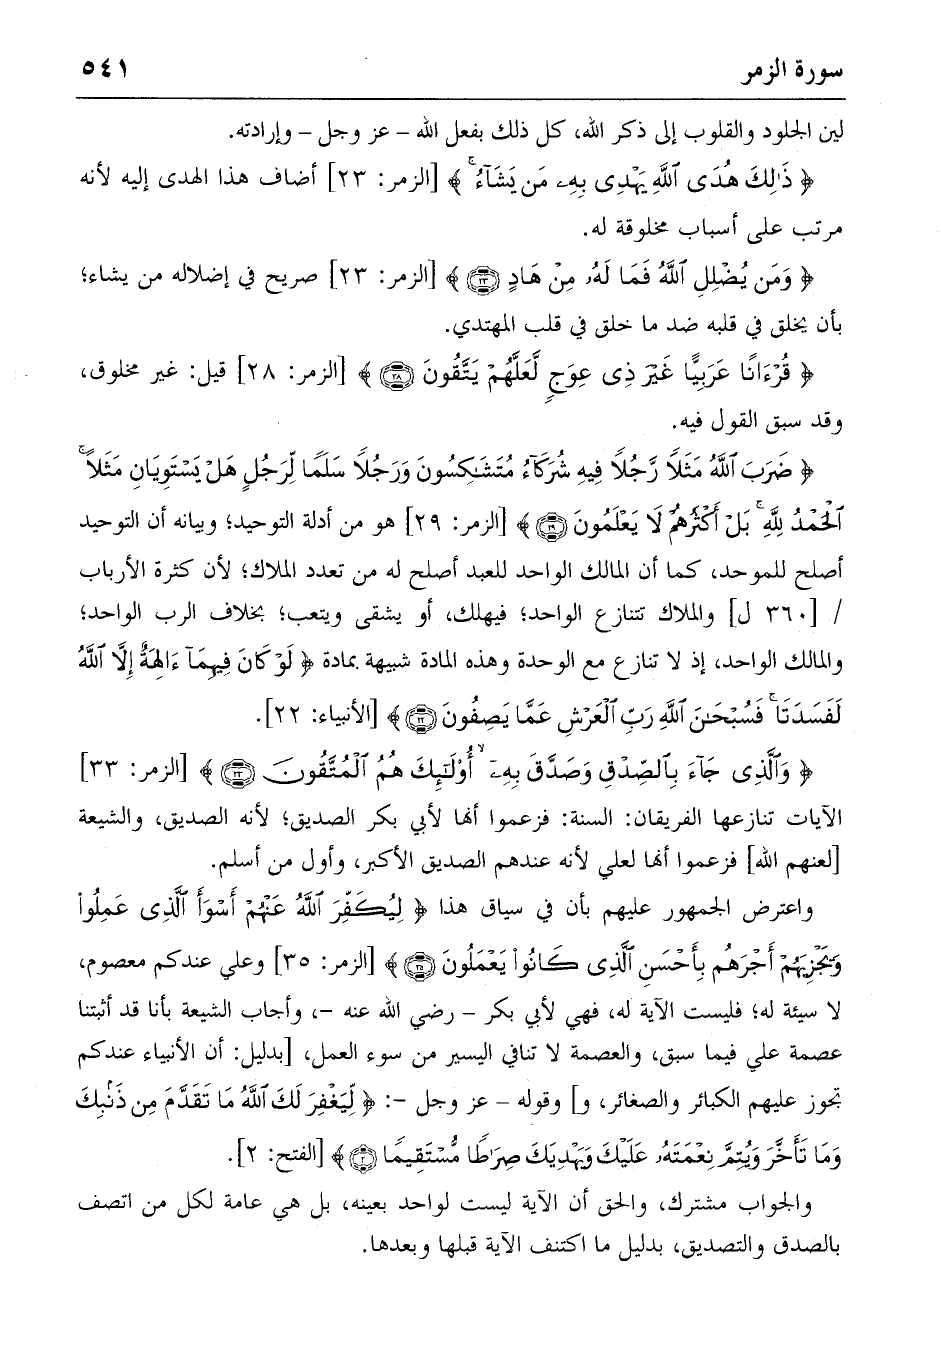 سورة الزمر ٥٤١
لين الجلود والقلوب إلى ذكر الله، كل ذلك بفعل الله – عز وجل – وإرادته.
﴿ ذَٰلِكَ هُدَى ٱللَّهِ يَهْدِى بِهِۦ مَن يَشَآءُ ۚ ﴾ [الزمر: ٢٣] أضاف هذا الهدى إليه لأنه
مرتب على أسباب مخلوقة له.
﴿ وَمَن يُضْلِلِ ٱللَّهُ فَمَا لَهُۥ مِنْ هَادٍ ٢٣ ﴾ [الزمر: ٢٣] صريح في إضلاله من يشاء؛
بأن يخلق في قلبه ضد ما خلق في قلب المهتدي.
﴿ قُرْءَانًا عَرَبِيًّا غَيْرَ ذِى عِوَجٍ لَّعَلَّهُمْ يَتَّقُونَ ٢٨ ﴾ [الزمر: ٢٨] قيل: غير مخلوق،
وقد سبق القول فيه.
﴿ ضَرَبَ ٱللَّهُ مَثَلًا رَّجُلًا فِيهِ شُرَكَآءُ مُتَشَٰكِسُونَ وَرَجُلًا سَلَمًا لِّرَجُلٍ هَلْ يَسْتَوِيَانِ مَثَلًا ۚ
ٱلْحَمْدُ لِلَّهِ ۚ بَلْ أَكْثَرُهُمْ لَا يَعْلَمُونَ ٢٩ ﴾ [الزمر: ٢٩] هو من أدلة التوحيد؛ وبيانه أن التوحيد
أصلح للموحد، كما أن المالك الواحد للعبد أصلح له من تعدد الملاك؛ لأن كثرة الأرباب
/ [٣٦٠ ل] والملاك تتنازع الواحد؛ فيهلك، أو يشقى ويتعب؛ بخلاف الرب الواحد؛
والمالك الواحد، إذ لا تنازع مع الوحدة وهذه المادة شبيهة بمادة ﴿ لَوْ كَانَ فِيهِمَآ ءَالِهَةٌ إِلَّا ٱللَّهُ
لَفَسَدَتَا ۚ فَسُبْحَٰنَ ٱللَّهِ رَبِّ ٱلْعَرْشِ عَمَّا يَصِفُونَ ٢٢ ﴾ [الأنبياء: ٢٢].
﴿ وَٱلَّذِى جَآءَ بِٱلصِّدْقِ وَصَدَّقَ بِهِۦٓ ۙ أُوْلَٰٓئِكَ هُمُ ٱلْمُتَّقُونَ ٣٣ ﴾ [الزمر: ٣٣]
الآيات تنازعها الفريقان: السنة: فزعموا أنها لأبي بكر الصديق؛ لأنه الصديق، والشيعة
[لعنهم الله] فزعموا أنها لعلي لأنه عندهم الصديق الأكبر، وأول من أسلم.
واعترض الجمهور عليهم بأن في سياق هذا ﴿ لِيُكَفِّرَ ٱللَّهُ عَنْهُمْ أَسْوَأَ ٱلَّذِى عَمِلُواْ
وَيَجْزِيَهُمْ أَجْرَهُم بِأَحْسَنِ ٱلَّذِى كَانُواْ يَعْمَلُونَ ٣٥ ﴾ [الزمر: ٣٥] وعلي عندكم معصوم،
لا سيئة له؛ فليست الآية له، فهي لأبي بكر – رضي الله عنه –، وأجاب الشيعة بأنا قد أثبتنا
عصمة علي فيما سبق، والعصمة لا تنافي اليسير من سوء العمل، [بدليل: أن الأنبياء عندكم
تجوز عليهم الكبائر والصغائر، و] وقوله – عز وجل –: ﴿ لِّيَغْفِرَ لَكَ ٱللَّهُ مَا تَقَدَّمَ مِن ذَنۢبِكَ
وَمَا تَأَخَّرَ وَيُتِمَّ نِعْمَتَهُۥ عَلَيْكَ وَيَهْدِيَكَ صِرَٰطًا مُّسْتَقِيمًا ٢ ﴾ [الفتح: ٢].
والجواب مشترك، والحق أن الآية ليست لواحد بعينه، بل هي عامة لكل من اتصف
بالصدق والتصديق، بدليل ما اكتنف الآية قبلها وبعدها.